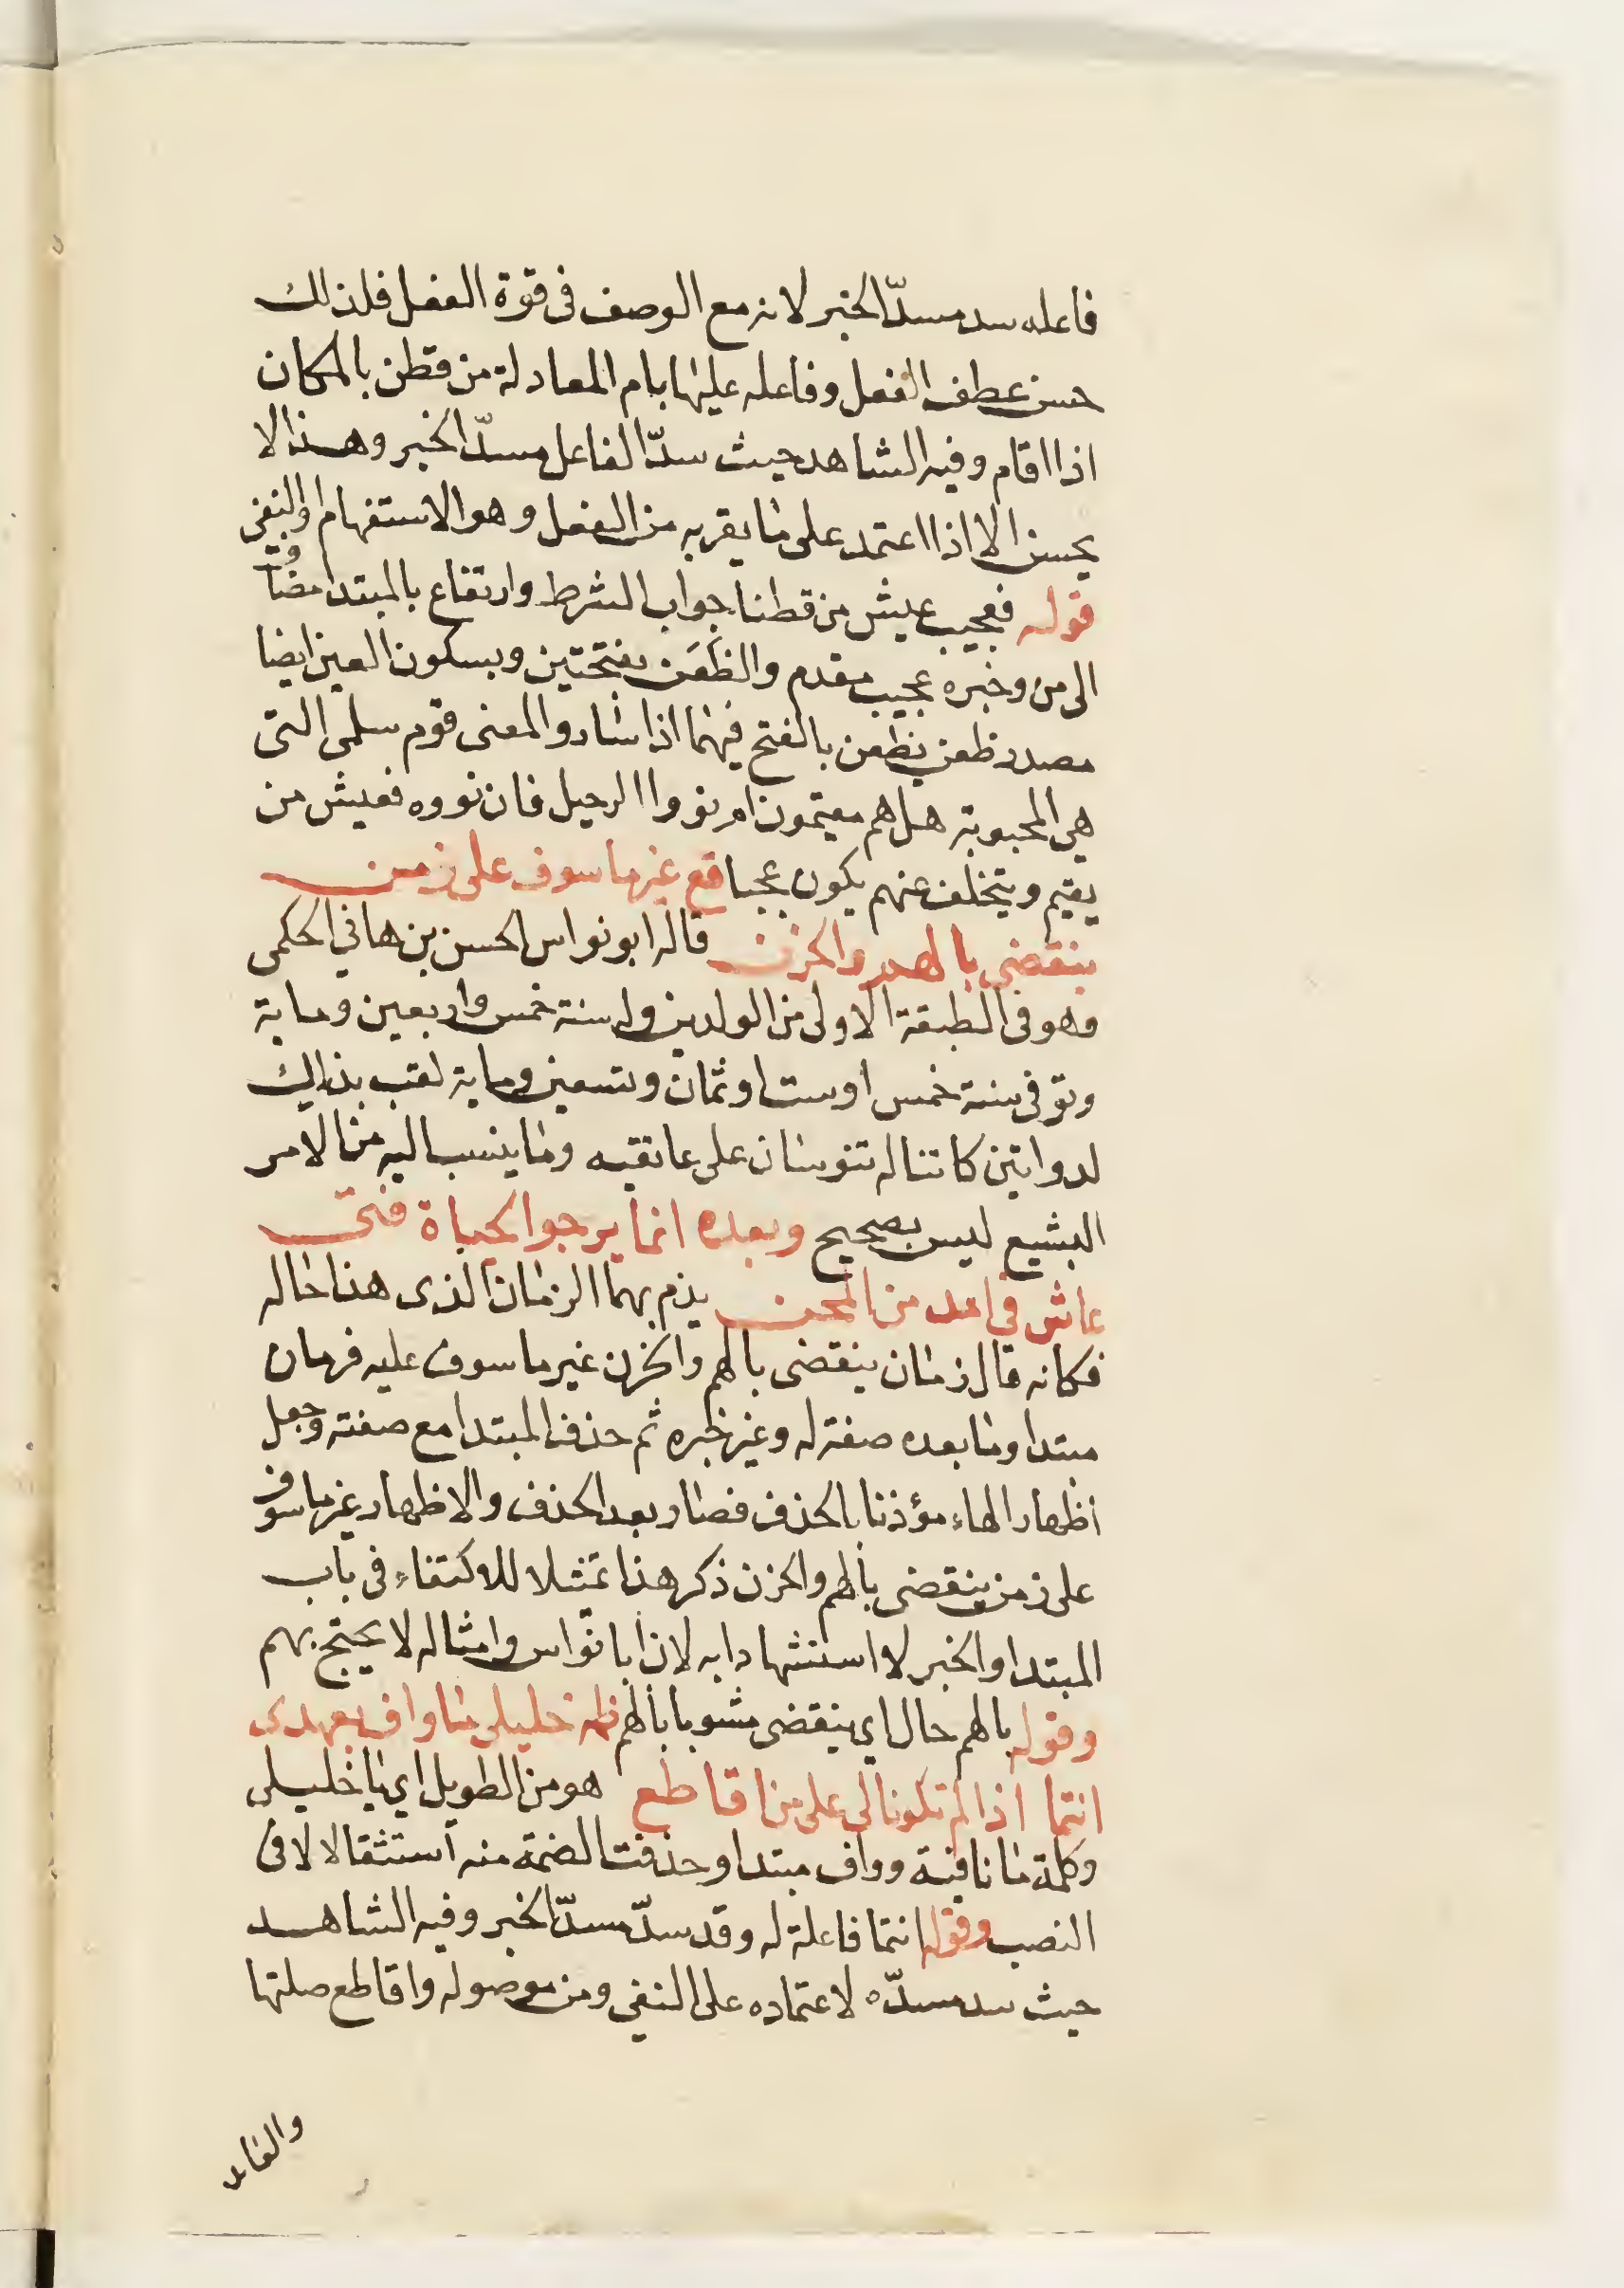 فاعله سد مسدّ الخبر لانه مع الوصف فى قوة الفعل فلذلك
حسن عطف الفعل وفاعله عليها بام المعادلة من قطن بالمكان
اذا اقام وفيه الشاهد حيث سدّ الفاعل مسدّ الخبر وهذا لا
يحسن الا اذا اعتمد على ما يقربه من الفعل وهو الاستفهام او النفى
قوله فعجيب عيش من قطنا جواب الشرط وارتفاع بالمبتدا مضافٌ
الى من وخبره عجيب مقدم والظَعَن بفتحتين وبسكون العين ايضا
مصدر ظعن يظعن بالفتح فيهما اذا سار والمعنى قوم سلمى التى
هى المحبوبة هل هم مقيمون ام نووا الرحيل فان نووه فعيش من
يقيم ويتخلف عنهم يكون عجبا قع غير ماسوف على زمن
ينقضى بالهم والحزن قاله ابو نواس الحسن بن هانى الحكمى
وهو فى الطبقة الاولى من الولدين ولد سنة خمس واربعين وماية
وتوفى سنة خمس او ست او ثمان وتسعين وماية لقب بذلك
لدوابتين كانتا له تنوسان على عاتقيه وما ينسب اليه من الامر
البشيع ليس بصحيح وبعده انما يرجوا الحياة فتى
عاش فى امد من المحن يذم بهما الزمان الذى هذا حاله
فكانه قال زمان ينقضى بالهم والحزن غير ماسوف عليه فزمان
مبتدا وما بعده صفة له وغير خبره ثم حذف المبتدا مع صفته وجعل
اظهار الهاء مؤذنا بالحذف فصار بعد الحذف والاظهار غير ماسوف
على زمن ينقضى بالهم والحزن ذكر هذا تمثلا للاكتفاء فى باب
المبتدا والخبر لا استشهادا به لان ابا نوّاس وامثاله لا يحتج بهم
وقوله بالهم حال اى ينقضى مشوبا بالهم ظه خليلى ما واف بعهدى
انتما اذا لم تكونا لى على من اقاطع هو من الطويل اى يا خليلى
وكلمة ما نافية وواف مبتدا وحذفت الضمة منه استثقالا لا فى
النصب وقوله انتما فاعلة له وقد سدّ مسدّ الخبر وفيه الشاهد
حيث سد مسدّه لاعتماده على النفى ومن موصولة واقاطع صلتها
والعايد